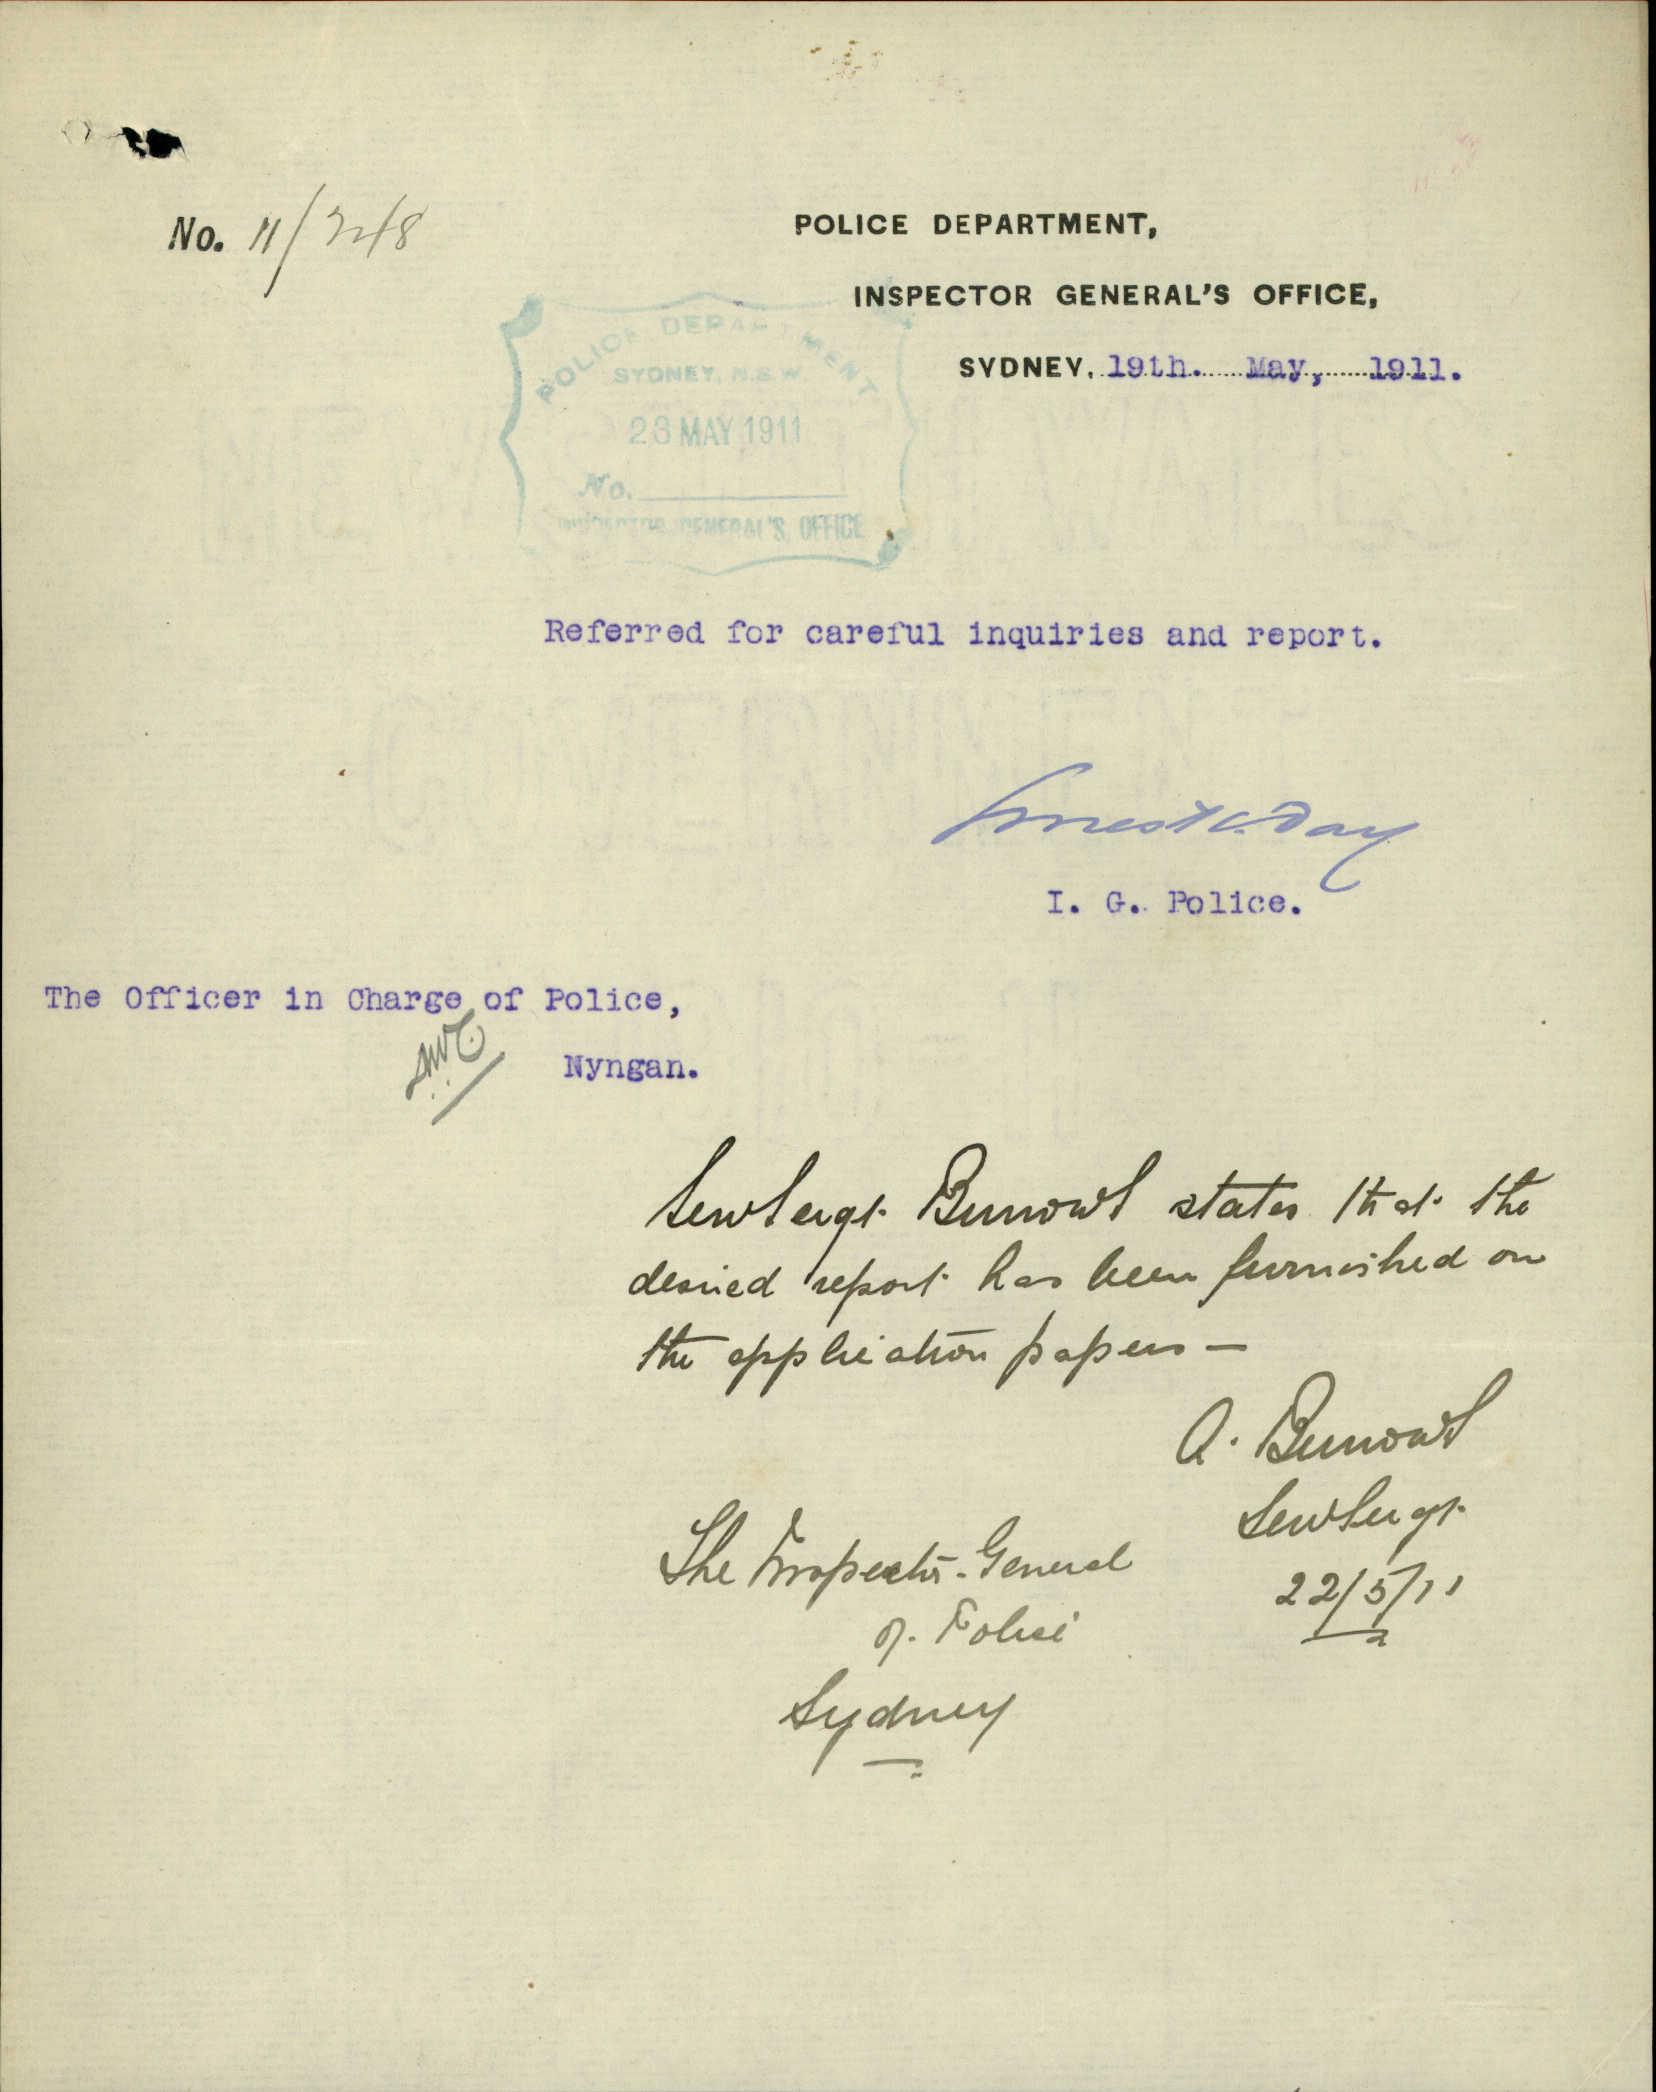 No. 11/
POLICE DEPARTMENT,
INSPECTOR GENERAL'S OFFICE,
SYDNEY, 19th. May, 1911.
POLICE DEPARTMENT
SYDNEY, N.S.W.
23 MAY 1911
No.
INSPECTOR GENERAL'S OFFICE
Referred for careful inquiries and report.
Ernest C. Day
I. G. Police.
The Officer in Charge of Police,
Nyngan.
Sergt. states that the
desired report has been furnished on
the application papers —
A.
Sergt.
22/5/11
The Inspector-General
of Police
Sydney